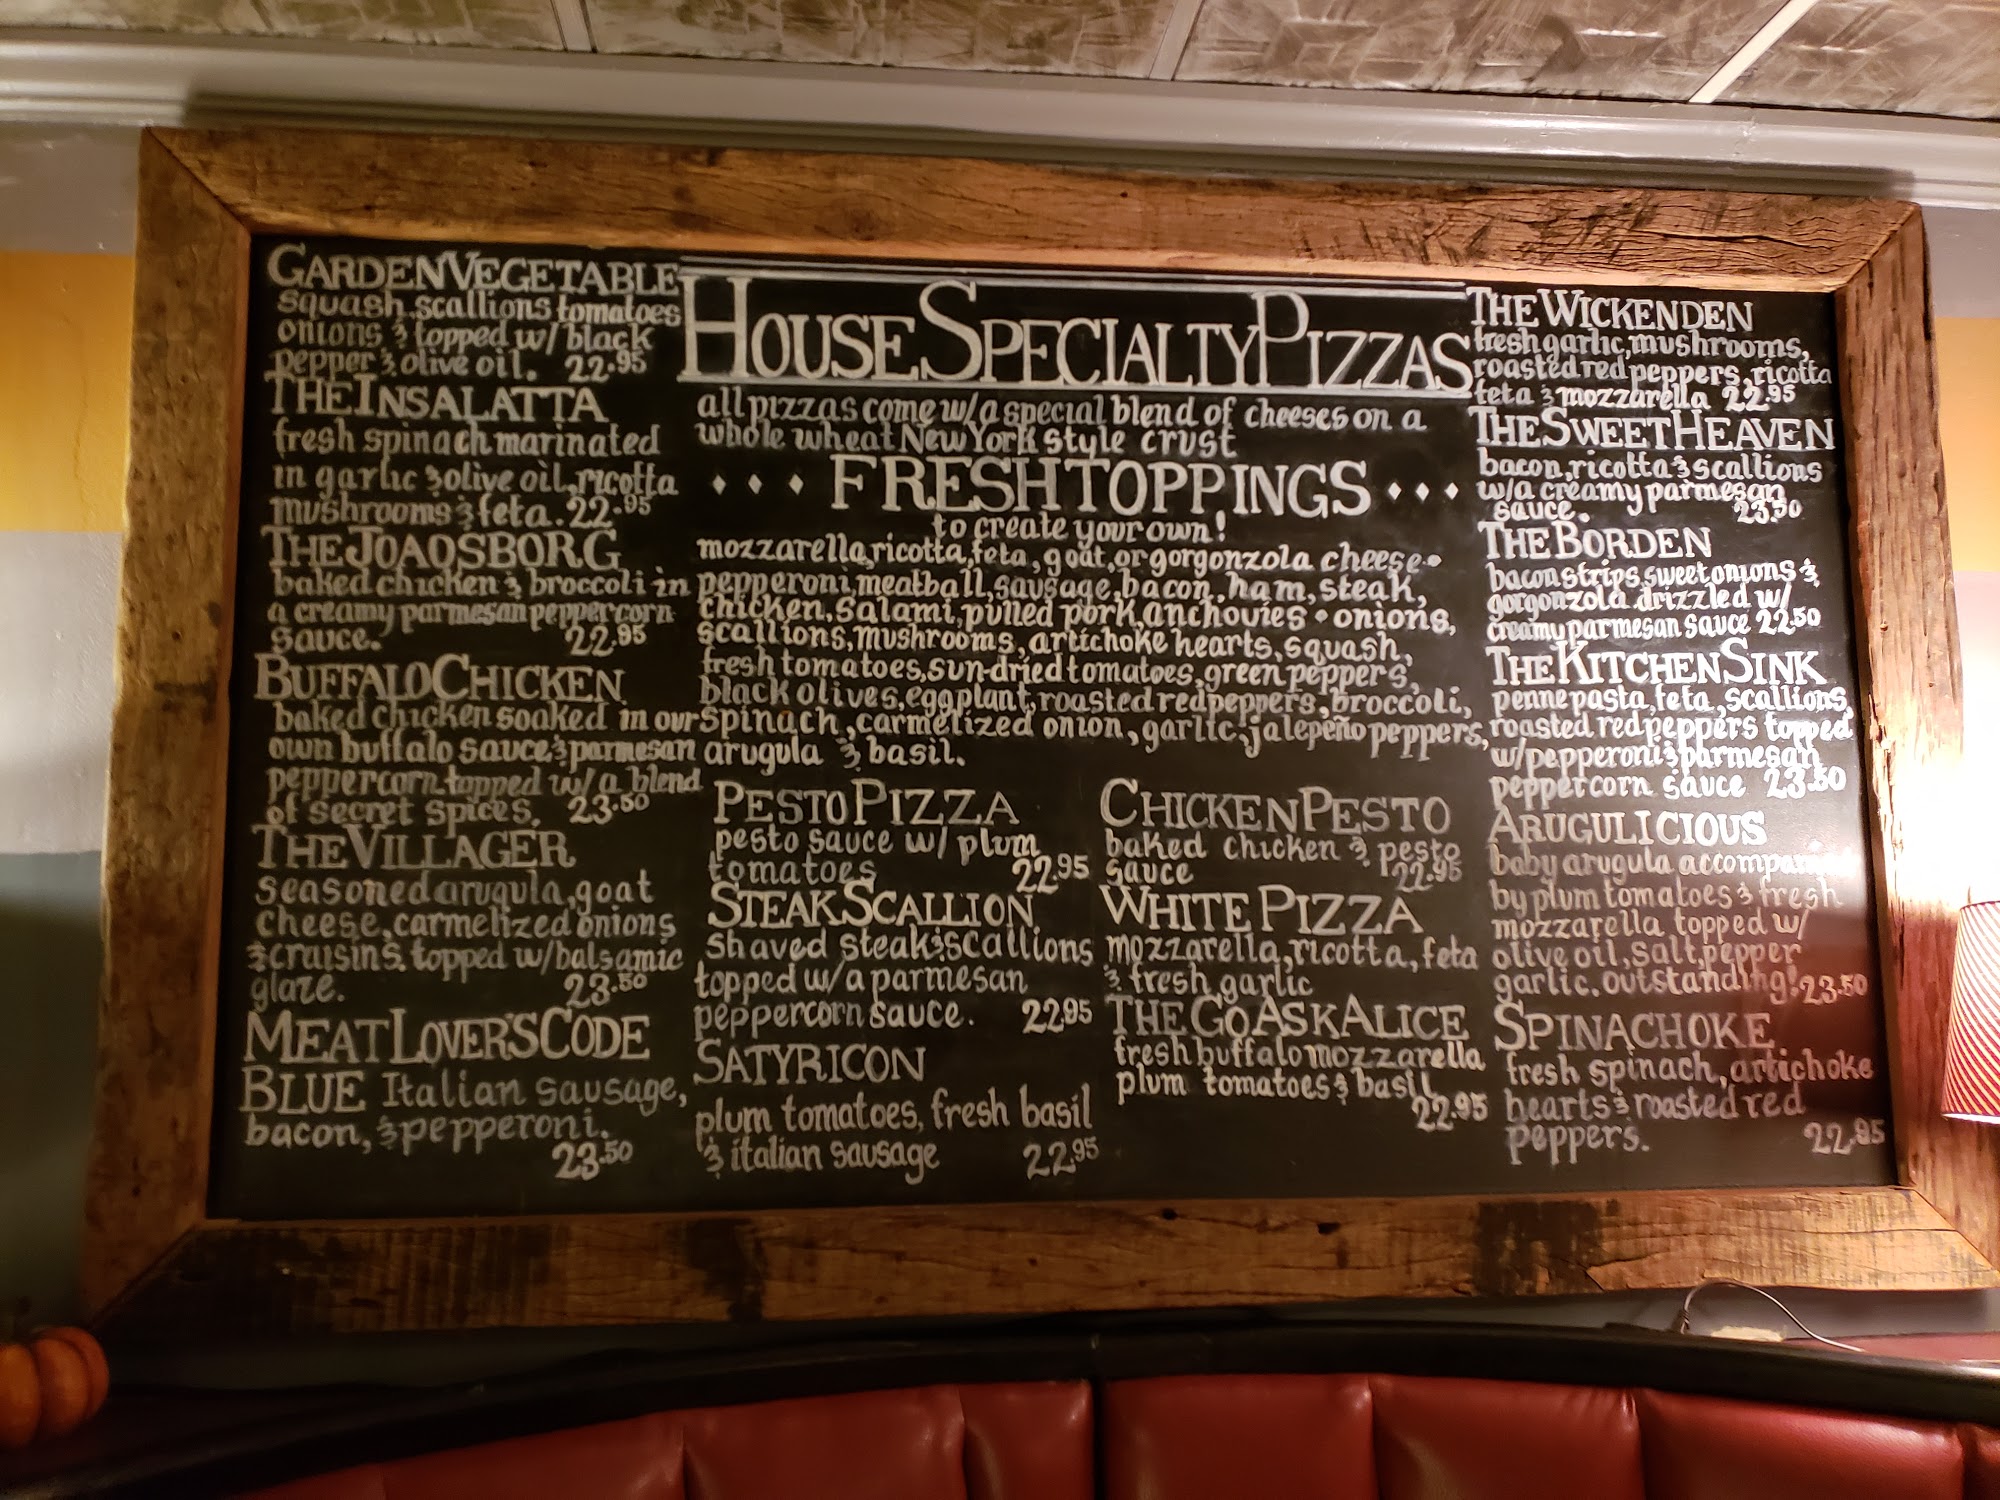 GARDEN VEGETABLE
squash, scallions tomatoes
onions & topped w/ black
pepper & olive oil. 22.95
THE INSALATTA
fresh spinach marinated
in garlic & olive oil, ricotta
mushrooms & feta. 22.95
THE JOAQSBORG
baked chicken & broccoli in
a creamy parmesan peppercorn
sauce. 22.95
BUFFALO CHICKEN
baked chicken soaked in our
own buffalo sauce & parmesan
peppercorn topped w/ a blend
of secret spices. 23.50
THE VILLAGER
seasoned arugula, goat
cheese, carmelized onions
& craisins. topped w/ balsamic
glaze. 23.50
MEAT LOVER'S CODE
BLUE Italian sausage,
bacon, & pepperoni.
23.50
HOUSE SPECIALTY PIZZAS
all pizzas come w/ a special blend of cheeses on a
whole wheat New York style crust
FRESH TOPPINGS
to create your own!
mozzarella, ricotta, feta, goat, or gorgonzola cheese •
pepperoni, meatball, sausage, bacon, ham, steak,
chicken, salami, pulled pork, anchovies • onions,
scallions, mushrooms, artichoke hearts, squash,
fresh tomatoes, sun-dried tomatoes, green peppers,
black olives, eggplant, roasted red peppers, broccoli,
spinach, carmelized onion, garlic, jalepeño peppers,
arugula & basil.
PESTO PIZZA
pesto sauce w/ plum
tomatoes 22.95
STEAK SCALLION
shaved steak & scallions
topped w/ a parmesan
peppercorn sauce. 22.95
SATYRICON
plum tomatoes, fresh basil
& italian sausage 22.95
CHICKEN PESTO
baked chicken & pesto
sauce 22.95
WHITE PIZZA
mozzarella, ricotta, feta
& fresh garlic
THE GO ASK ALICE
fresh buffalo mozzarella
plum tomatoes & basil
22.95
THE WICKENDEN
fresh garlic, mushrooms,
roasted red peppers, ricotta
feta & mozzarella 22.95
THE SWEET HEAVEN
bacon, ricotta & scallions
w/ a creamy parmesan
sauce. 23.50
THE BORDEN
bacon strips, sweet onions &
gorgonzola drizzled w/
creamy parmesan sauce 22.50
THE KITCHEN SINK
penne pasta, feta, scallions,
roasted red peppers topped
w/ pepperoni & parmesan
peppercorn sauce 23.50
ARUGULICIOUS
baby arugula accompanied
by plum tomatoes & fresh
mozzarella topped w/
olive oil, salt, pepper
garlic. outstanding! 23.50
SPINACHOKE
fresh spinach, artichoke
hearts & roasted red
peppers. 22.95